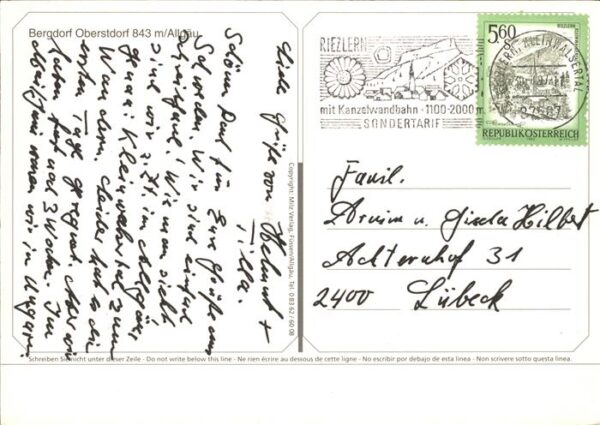 Bergdorf Oberstdorf 843 m/Allgäu
Schöne Post für Eure Grüße aus
Wir sind einfach
Wie man sieht
sind wir z. Zt. im Allgäu,
Kleinwalsertal zum
Wandern. Leider hat es die
ersten Tage geregnet. Aber wir
haben fast noch 3 Wochen. Im
waren wir in Ungarn.
Liebe Grüße von Helmut +
Ulla.
Copyright: Milz Verlag, Füssen/Allgäu, Tel. 0 83 62 / 60 08
RIEZLERN
mit Kanzelwandbahn · 1100-2000 m
SONDERTARIF
5,60
REPUBLIK ÖSTERREICH
Famil.
Armin u. Gisela Hilbert
Achternhof 31
2400 Lübeck
Schreiben Sie nicht unter dieser Zeile - Do not write below this line - Ne rien écrire au dessous de cette ligne - No escribir por debajo de esta linea - Non scrivere sotto questa linea.